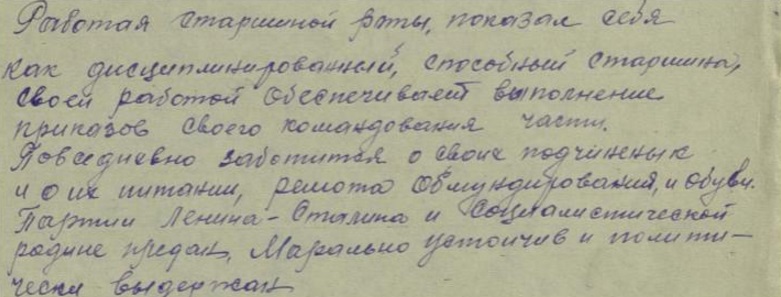 Работая старшиной роты, показал себя
как дисциплинированный, способный старшина,
своей работой обеспечивает выполнение
приказов своего командования части.
Повседневно заботится о своих подчиненых
и о их питании, ремота обмундирования, и обуви.
Партии Ленина-Сталина и социалистической
родине предан. Марально устойчив и полити-
чески выдержан